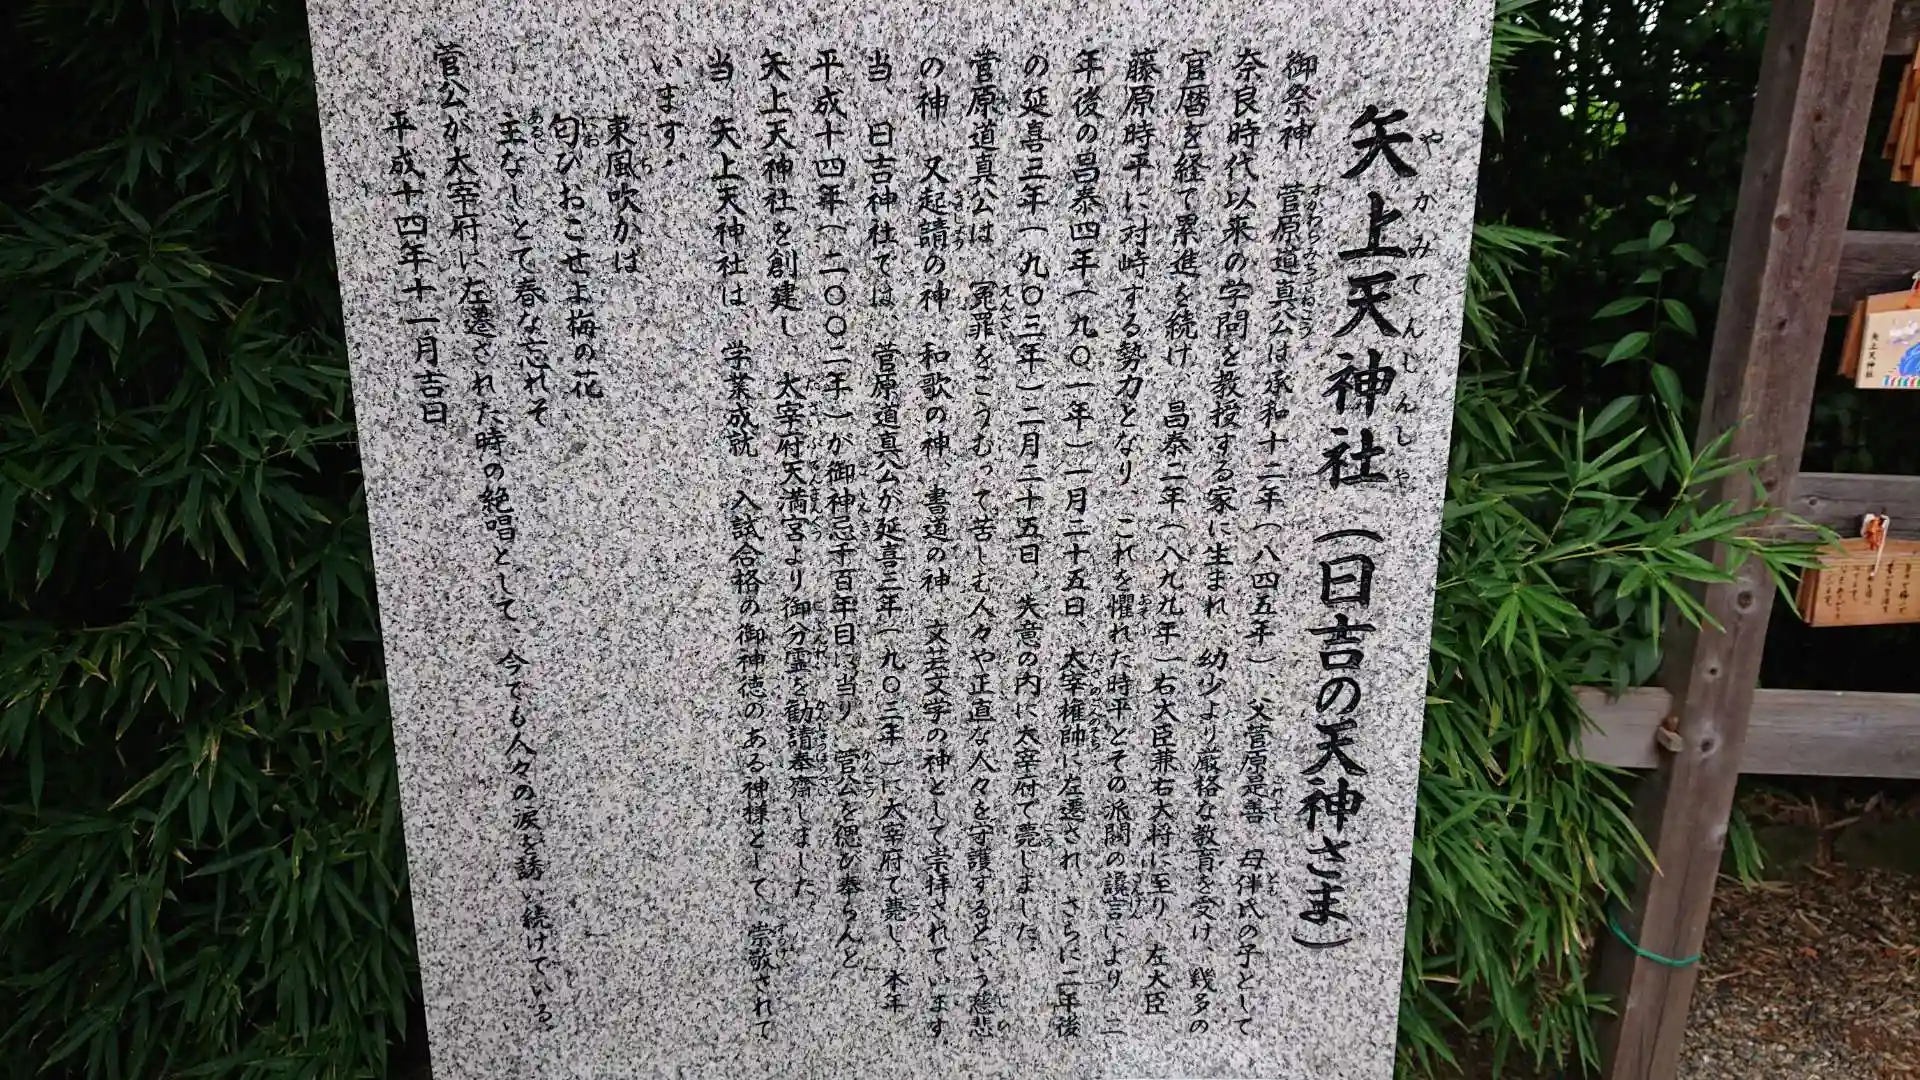 矢上天神社(日吉の天神さま)
やかみてんじんしゃ
御祭神、菅原道真公は承和十二年(八四五年)、父菅原是善 母伴氏の子として
奈良時代以来の学問を教授する家に生まれ、幼少より厳格な教育を受け、幾多の
官暦を経て累進を続け 昌泰二年(八九九年)右大臣兼右大将に至り、左大臣
藤原時平に対峙する勢力となり、これを懼れた時平とその派閥の讒言により 二
年後の昌泰四年(九〇一年)一月二十五日、大宰権帥に左遷され、さらに二年後
の延喜三年(九〇三年)二月二十五日、失意の内に大宰府で薨じました。
菅原道真公は、冤罪をこうむって苦しむ人々や正直な人々を守護するという慈悲
の神、又起請の神、和歌の神、書道の神、文芸文字の神として崇拝されています
当、日吉神社では、菅原道真公が延喜三年(九〇三年)に大宰府で薨し、本年
平成十四年(二〇〇二年)が御神忌千百年目に当り 菅公を偲び奉らんと
矢上天神社を創建し、太宰府天満宮より御分霊を勧請奉齋しました。
当 矢上天神社は 学業成就 入試合格の御神徳のある神様として、崇敬されて
います。
東風吹かは
匂ひおこせよ梅の花
主なしとて春な忘れそ
菅公が太宰府に左遷された時の絶唱として、今でも人々の涙を誘い続けている。
平成十四年十一月吉日
矢上天神社